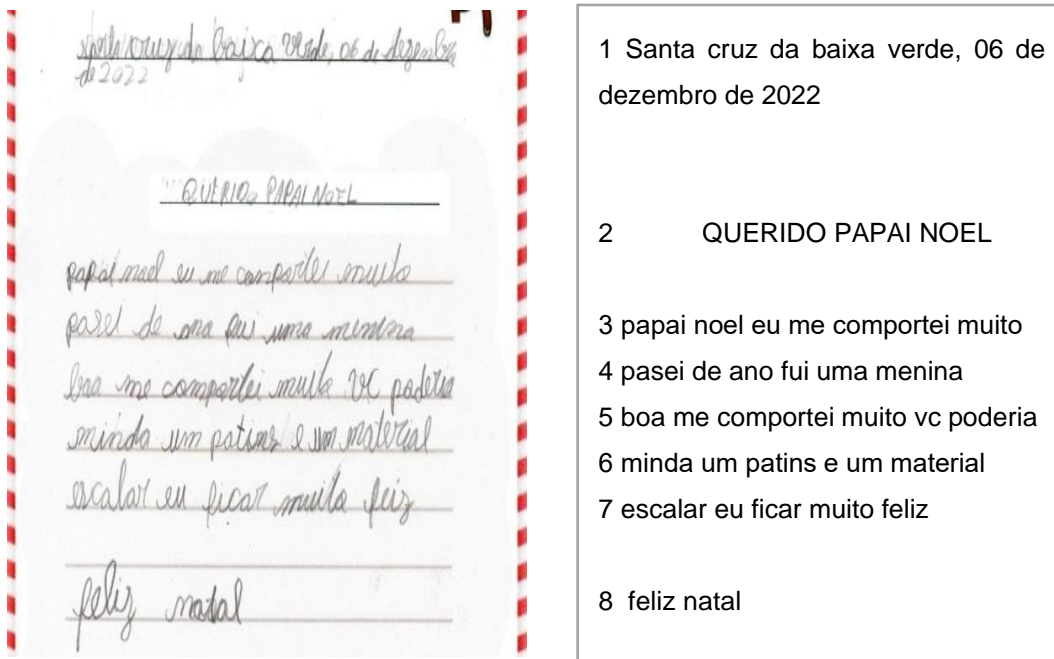 santa cruz da baixa verde, 06 de dezembro
de 2022
QUERIDO PAPAI NOEL
papai noel eu me comportei muito
pasei de ano fui uma menina
boa me comportei muito vc poderia
minda um patins e um material
escalar eu ficar muito feiz
feliz natal
1 Santa cruz da baixa verde, 06 de
dezembro de 2022
2 QUERIDO PAPAI NOEL
3 papai noel eu me comportei muito
4 pasei de ano fui uma menina
5 boa me comportei muito vc poderia
6 minda um patins e um material
7 escalar eu ficar muito feliz
8 feliz natal